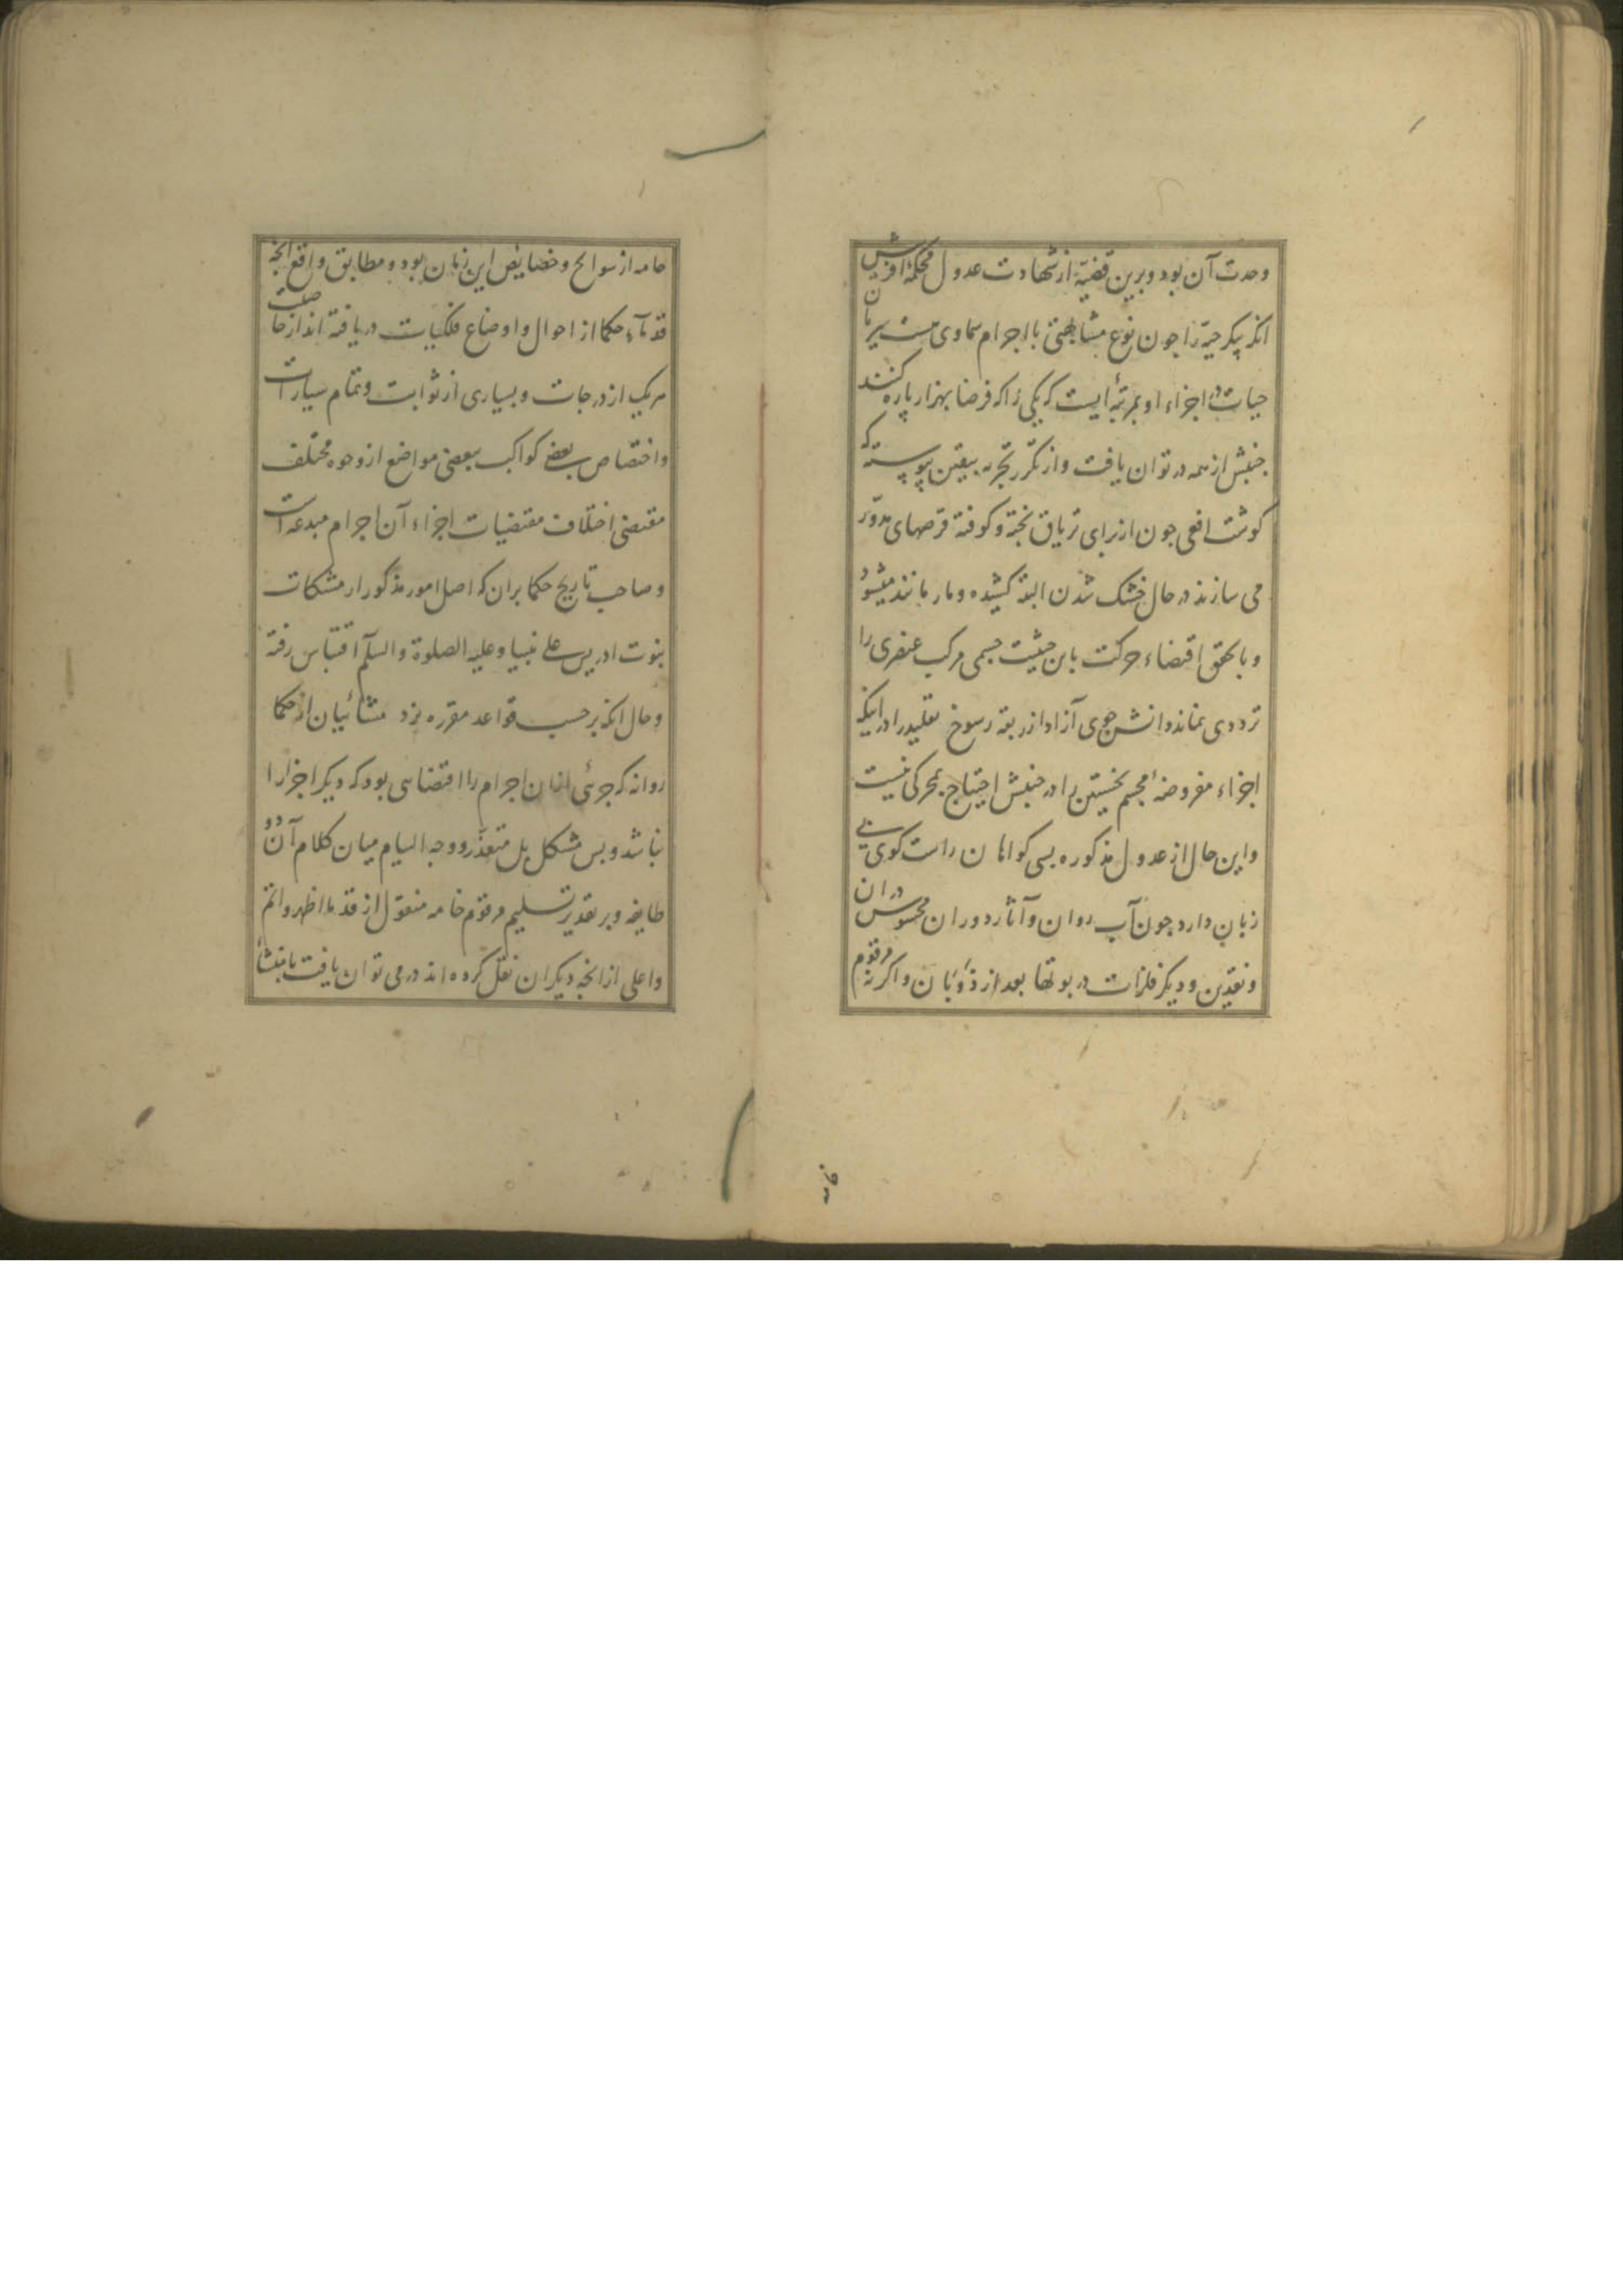 وحدت آن بود و برین قضیّه از شهادت عدول محکمهٔ آفرینش
انکه پیکر حیّه را جون نوع مشابهتی با اجرام سماوی هست سریان
حیات در اجزاء او بمرتبهٔ ایست که یکی را که فرضا بهزار پاره کنند
جنبش از همه در توان یافت و از تکرّر تجربه بیقین پیوسته که
کوشت افعی جون از برای تریاق پخته و کوفته قرصهای مدوّر
می سازند در حال خشک شدن البته کشیده و مار مانند میشود
و با تحقق اقتضاء حرکت باین حیثیت جسمی مرکب عنصری را
ترددی نماند دانش جوی آزاد از ربقهٔ رسوخ تقلید را در اینکه
اجزاء مفروضهٔ مجسم نخستین را در جنبش احتیاج بمحرکی نیست
و این حال از عدول مذکوره بسی کواهان راست کوی بی
زبان دارد جون آب روان و آثار دوران محسوس در ان
و نقدین و دیکر فلزات در بوتها بعد از ذوَبَان و اکر نه مرقوم
خامه
خامه از سوانح و خصایص این زمان بود و مطابق واقع انچه
قدمآء حکما از احوال و اوضاع فلکیات دریافته اند از خاصیت
هریک از درجات و بسیاری از ثوابت و تمام سیارات
و اختصاص بعضی کواکب ببعضی مواضع از وجوه مختلف
مقتضی اختلاف مقتضیات اجزاء آن اجرام مبدعه است
و صاحب تاریخ حکما بران که اصل امور مذکور از مشکات
نبوت ادریس علی نبینا و علیه الصلوة والسلم اقتباس رفته
و حال انکه برحسب قواعد مقرره نزد مشائیان از حکما
روا نه که جزئی از ان اجرام را اقتضاهی بود که دیکر اجزا را
نباشد و بس مشکل بل متعذّر وجه التیام میان کلام آن دو
طایفه و بر تقدیر تسلیم مرقوم خامه منقول از قدما اظهر و اتم
و اعلی از انچه دیکران نقل کرده اند در می توان یافت با منشأ